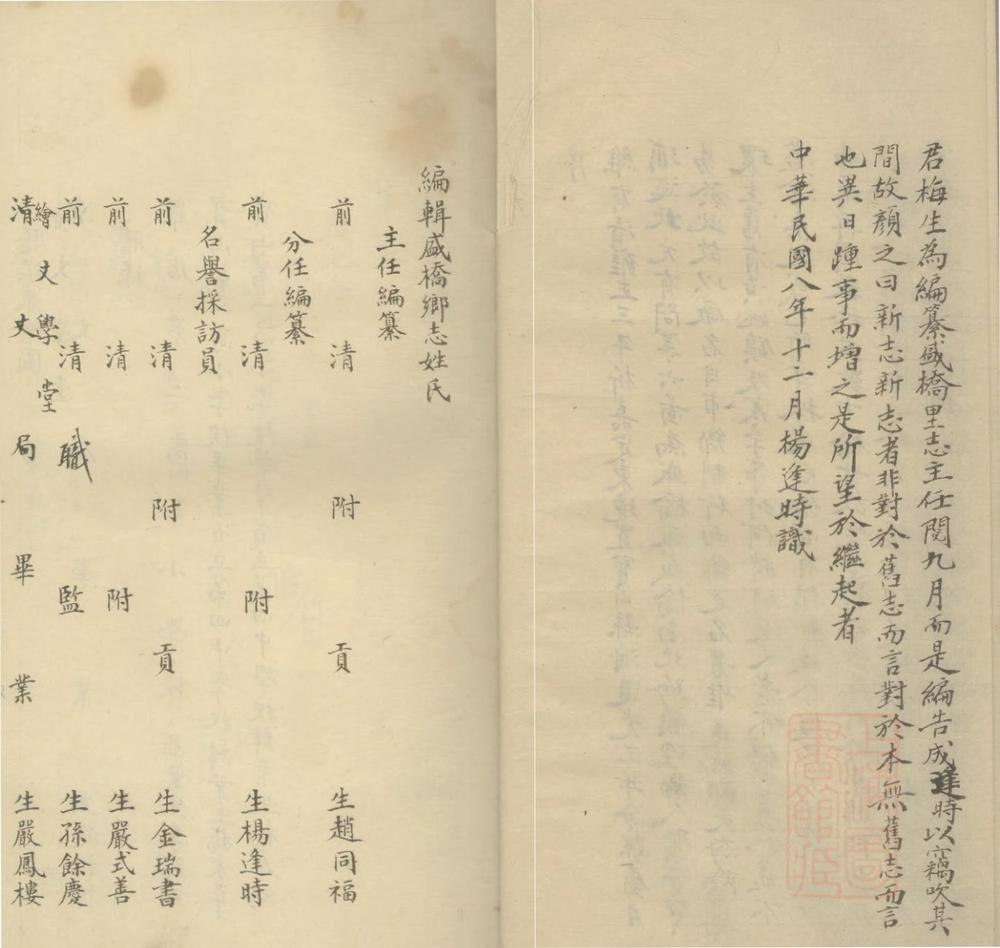 君梅生為編纂盛橋里志主任閱九月而是編告成逢時以竊吹其
間故顏之曰新志新志者非對於舊志而言對於本無舊志而言
也異日踵事而增之是所望於繼起者
中華民國八年十二月楊逢時識
編輯盛橋鄉志姓氏
主任編纂
前清附貢生趙同福
分任編纂
前清附生楊逢時
名譽採訪員
前清附貢生金瑞書
前清附生嚴式善
前清職監生孫餘慶
清丈局繪丈學堂畢業生嚴鳳樓